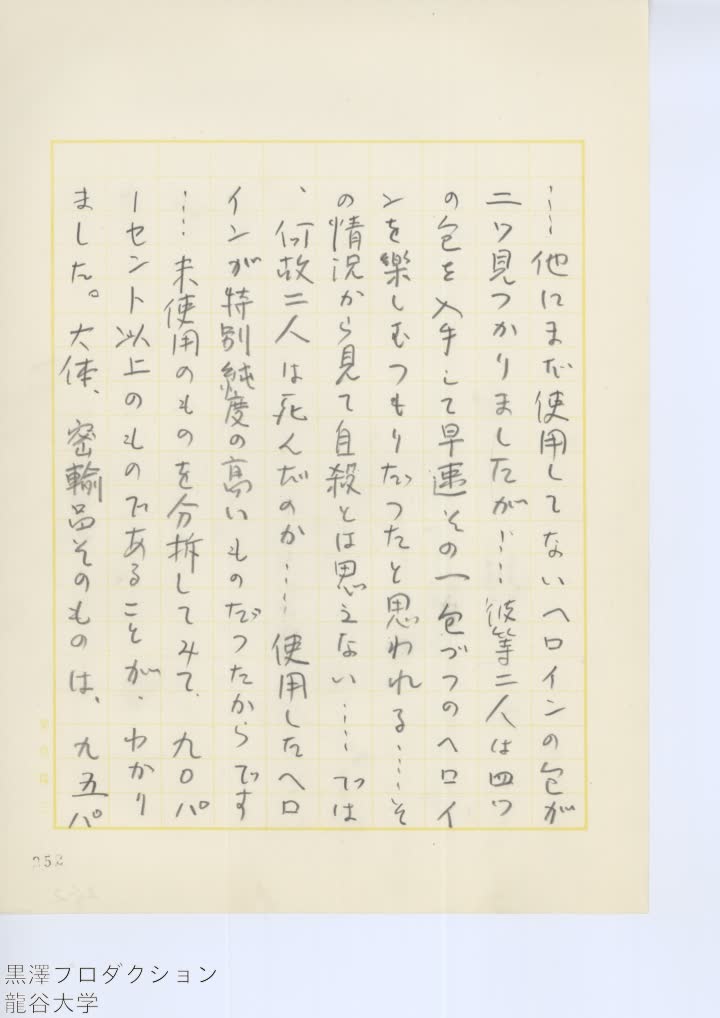 …他にまだ使用してないヘロインの包が
二ツ見つかりましたが……彼等二人は四ツ
の包を入手して早速その一包づつのヘロイ
ンを楽しむつもりだつたと思われる……そ
の情況から見て自殺とは思えない……では
、何故二人は死んだのか……使用したヘロ
インが特別純度の高いものだつたからです
……未使用のものを分拆してみて、九〇パ
ーセント以上のものであることが、わかり
ました。大体、密輸品そのものは、九五パ
252
黒澤プロダクション
龍谷大学